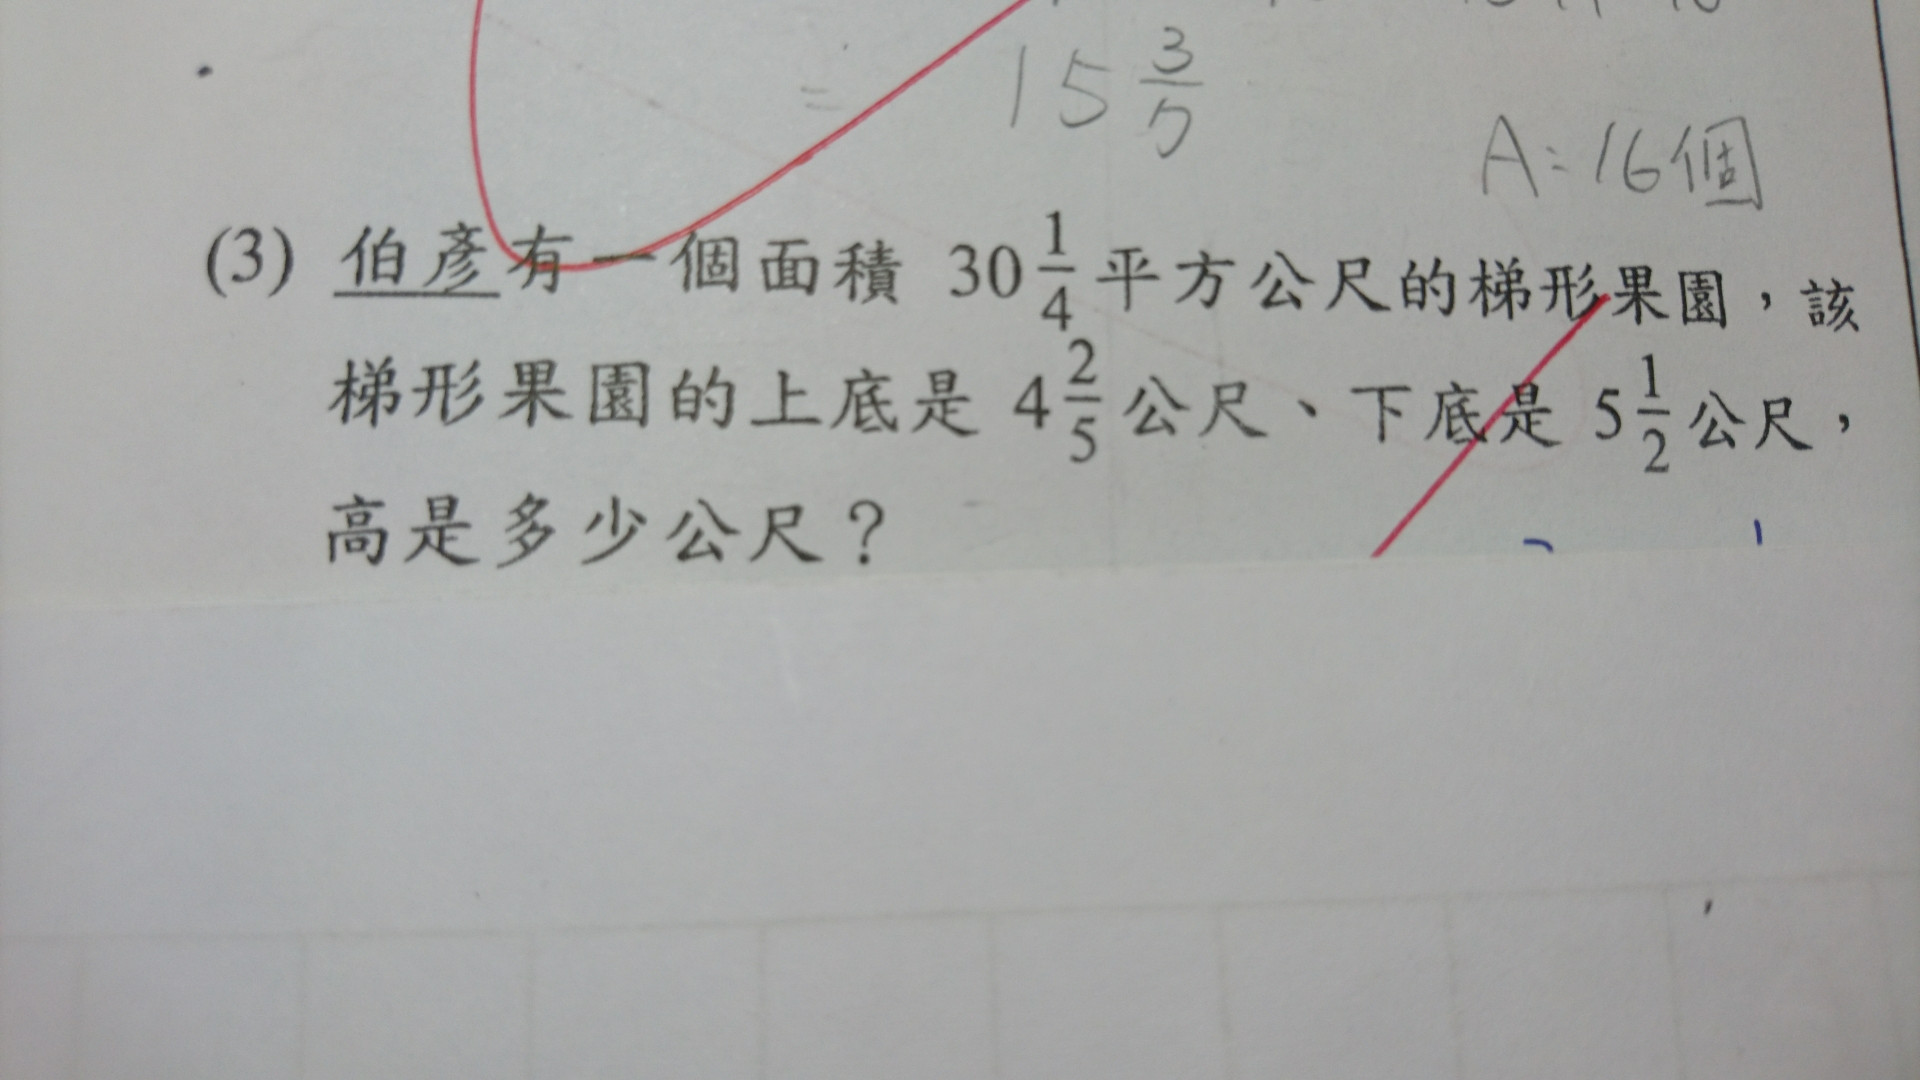 = 15 3/5
A=16個
(3) 伯彥有一個面積 30 1/4 平方公尺的梯形果園,該
梯形果園的上底是 4 2/5 公尺、下底是 5 1/2 公尺,
高是多少公尺?